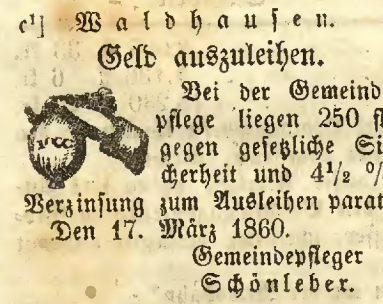 c¹] Waldhausen.
Geld auszuleihen.
Bei der Gemeind
pflege liegen 250 fl
gegen gesetzliche Si
cherheit und 4½ %
Verzinsung zum Ausleihen parat
Den 17. März 1860.
Gemeindepfleger
Schönleber.